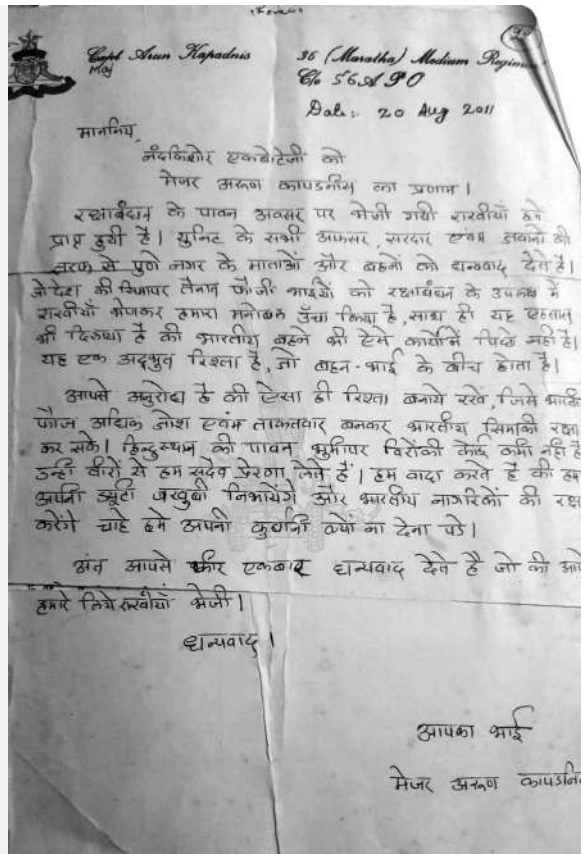 Capt Arun Kapadnis
Maj
36 (Maratha) Medium
C/o 56 APO
Date: 20 Aug 2011
माननिय,
नंदकिशोर एकबोटेजी को
मेजर अरूण कापडनीस का प्रणाम।
रक्षाबंधन के पावन अवसर पर भेजी गयी राखीयाँ हमे
प्राप्त हुयी है। युनिट के सभी अफसर, सरदार एवंम जवानो की
तरफ से पुणे नगर के माताओं और बहनों को धन्यवाद देते है।
जो देश की सिमापर तैनात फौजी भाइयों को रक्षाबंधन के उपलक्ष में
राखीयाँ भेजकर हमारा मनोबल उँचा किया है, साथ ही यह एहसास
भी दिलाया है की भारतीय बहने भी ऐसे कार्यामें पिछे नही है।
यह एक अद्भुत रिश्ता है, जो बहन-भाई के बीच होता है।
आपसे अनुरोध है की ऐसा ही रिश्ता बनाये रखे, जिसे
फौज अधिक जोश एवंम ताकतवार बनकर भारतीय सिमाकी रक्षा
कर सके। हिन्दुस्थान की पावन भुमीपर विरोंकी कोई कमी नही
उन्ही वीरों से हम सदैव प्रेरणा लेते हैं। हम वादा करते है की हम
अपनी ड्युटी बखुबी निभायेंगे और भारतीय नागरिकों की रक्षा
करेंगे चाहे हमे अपनी कुर्बानी क्यों ना देना पडे।
अंत आपसे फीर एकबार धन्यवाद देते है जो की
हमारे लिये राखीयाँ भेजी।
धन्यवाद।
आपका भाई
मेजर अरूण